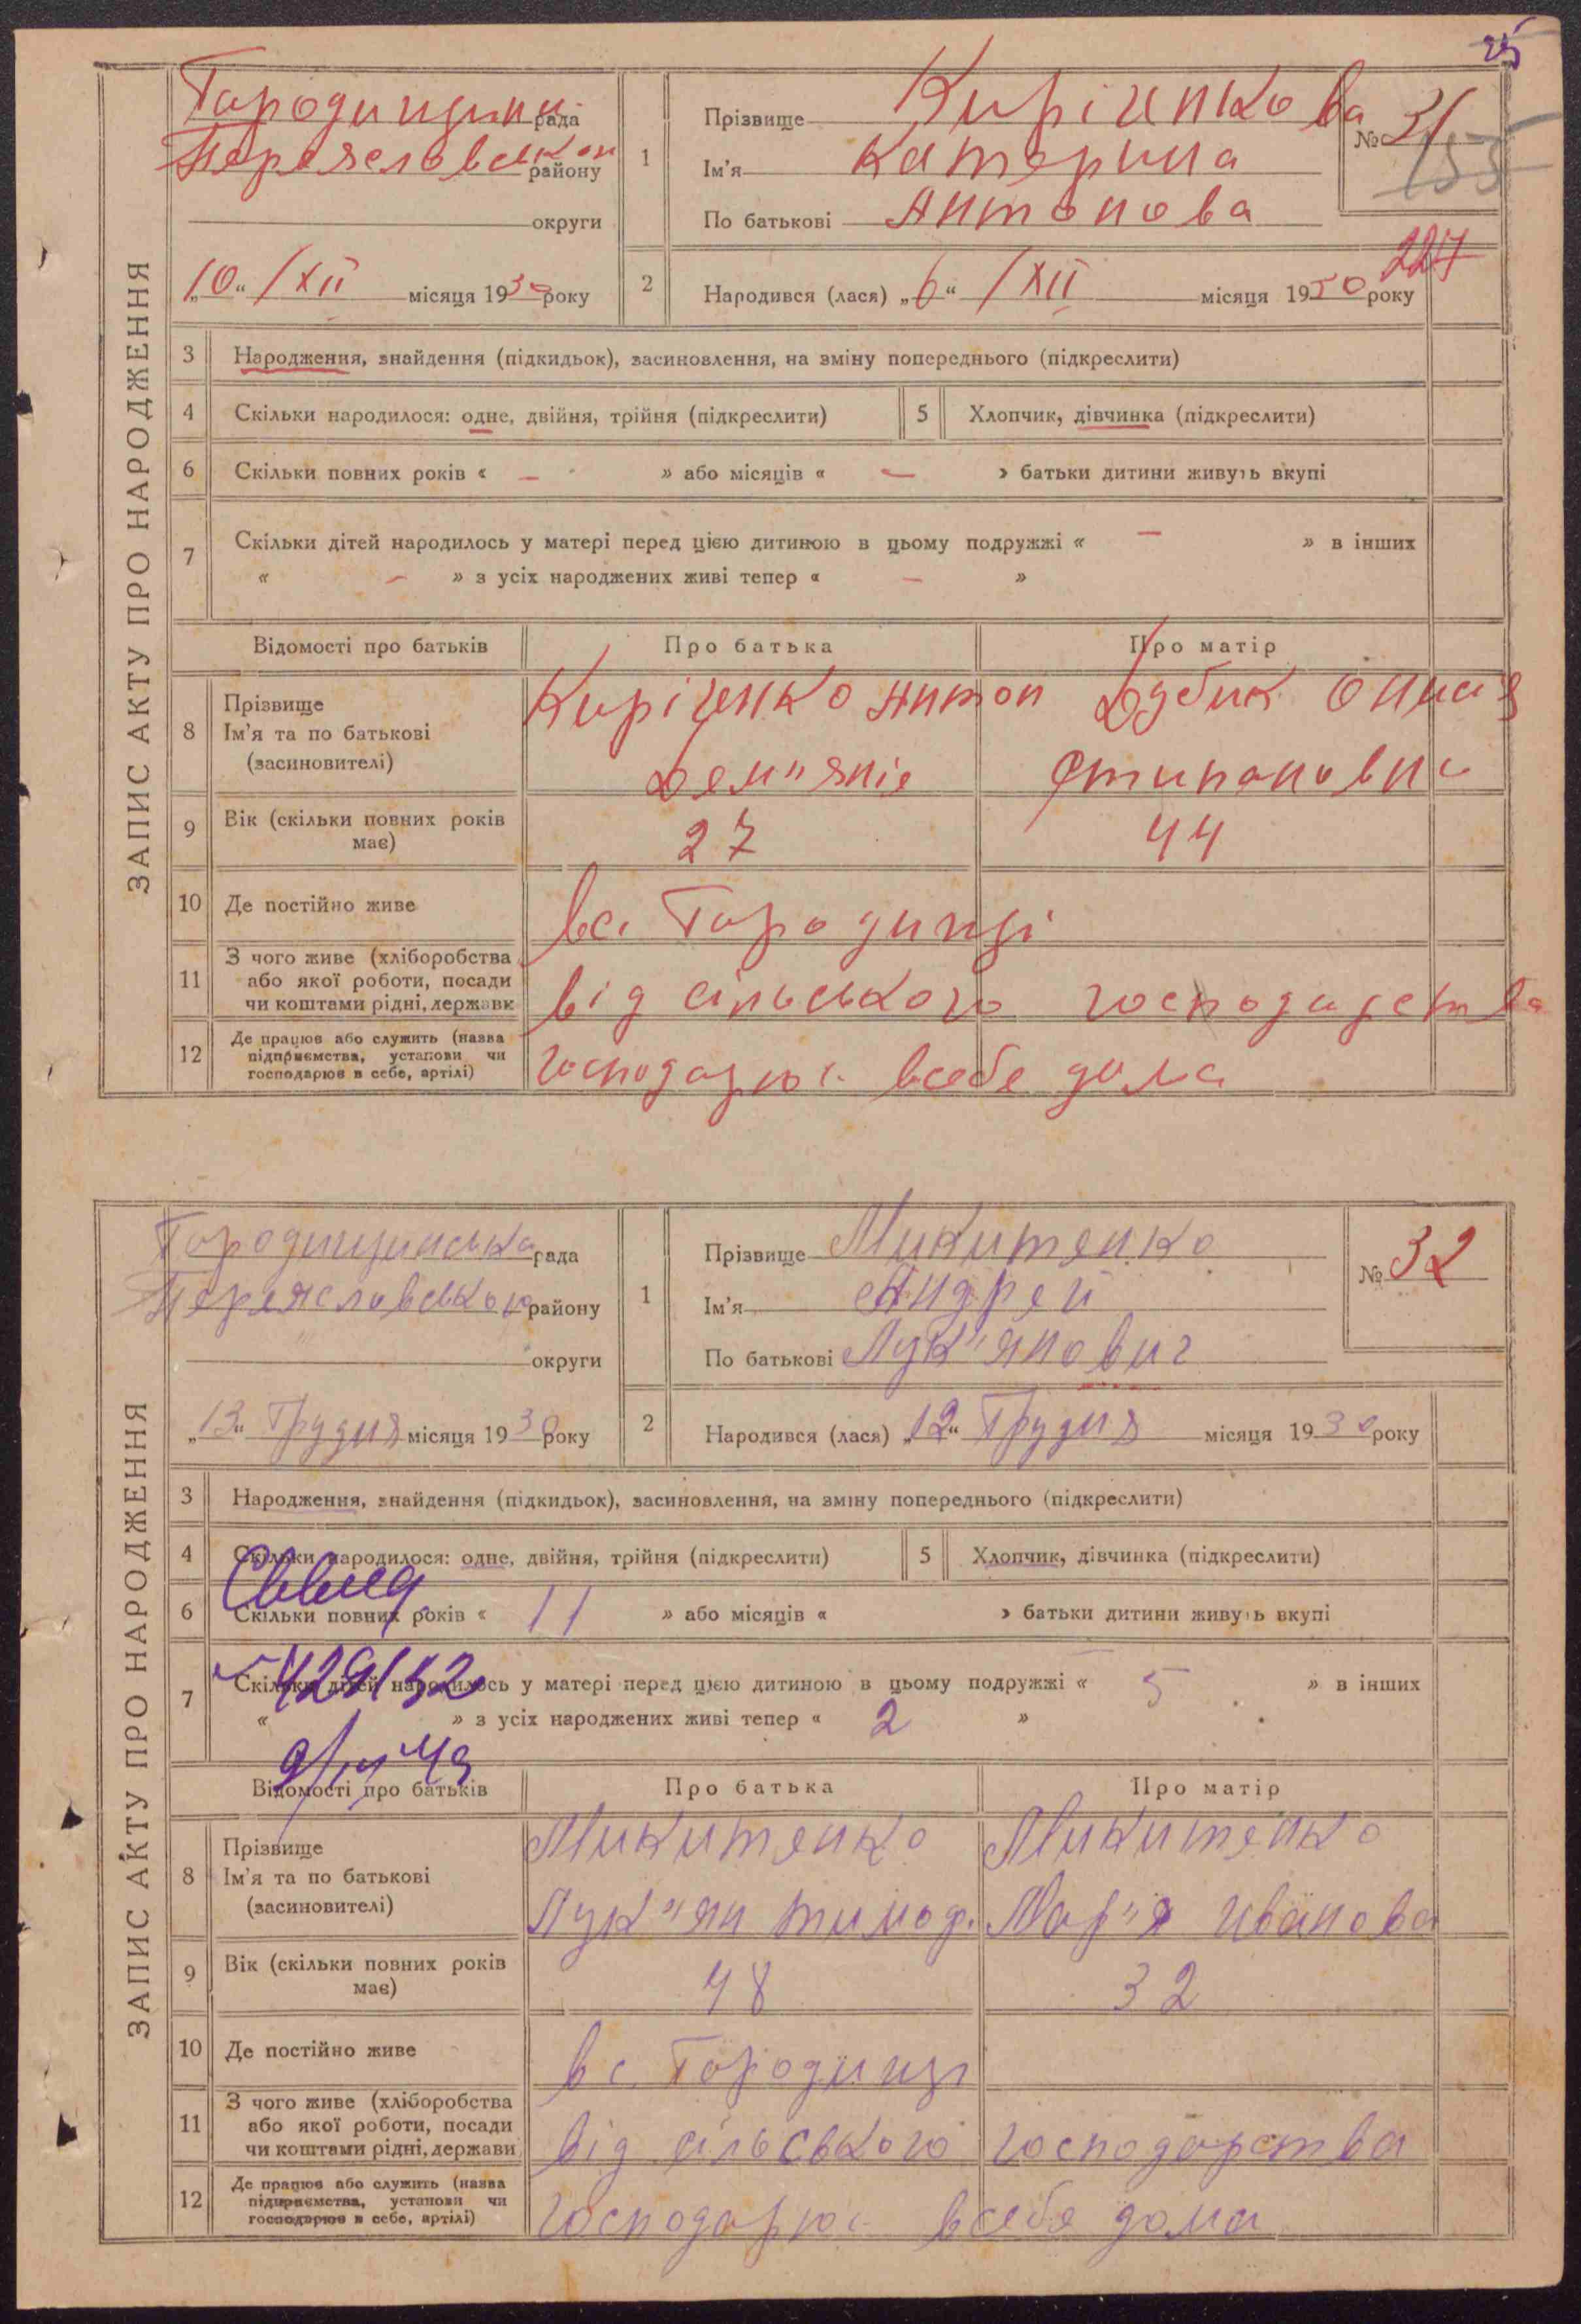 25
ЗАПИС АКТУ ПРО НАРОДЖЕННЯ
Городищини рада
Переяславськои району
округи
„10“ /XII місяця 1930 року
1
Прізвище Киріченкова
Ім'я Катерина
По батькові Антонова
№ 31
155
227
2
Народився (лася) „6“ /XII місяця 1930 року
3 Народження, знайдення (підкидьок), засиновлення, на зміну попереднього (підкреслити)
4 Скільки народилося: одне, двійня, трійня (підкреслити) 5 Хлопчик, дівчинка (підкреслити)
6 Скільки повних років « — » або місяців « — » батьки дитини живуть вкупі
7 Скільки дітей народилось у матері перед цією дитиною в цьому подружжі « — » в інших
« — » з усіх народжених живі тепер « — »
Відомості про батьків Про батька Про матір
8 Прізвище Ім'я та по батькові (засиновителі)
Киріченко Антон Дубик
Дем"яніє Стипановна
9 Вік (скільки повних років має) 27 44
10 Де постійно живе вс. Городищі
11 З чого живе (хліборобства або якої роботи, посади чи коштами рідні, державк
від сільського господарства
12 Де працює або служить (назва підприємства, установи чи господарює в себе, артілі)
господарює всебе дома
ЗАПИС АКТУ ПРО НАРОДЖЕННЯ
Городищинська рада
Переяславського району
округи
„13“ Грудня місяця 1930 року
1
Прізвище Микитенко
Ім'я Андрей
По батькові Лук"янович
№ 32
2
Народився (лася) „12“ Грудня місяця 1930 року
3 Народження, знайдення (підкидьок), засиновлення, на зміну попереднього (підкреслити)
4 Скільки народилося: одне, двійня, трійня (підкреслити) 5 Хлопчик, дівчинка (підкреслити)
6 Скільки повних років « 11 » або місяців « » батьки дитини живуть вкупі
7 Скільки дітей народилось у матері перед цією дитиною в цьому подружжі « 5 » в інших
« » з усіх народжених живі тепер « 2 »
Відомості про батьків Про батька Про матір
8 Прізвище Ім'я та по батькові (засиновителі)
Микитенко Микитенко
Лук"ян тимоф. Мар"я Иванова
9 Вік (скільки повних років має) 48 32
10 Де постійно живе в с. Городищі
11 З чого живе (хліборобства або якої роботи, посади чи коштами рідні, держави
від сільського господарства
12 Де працює або служить (назва підприємства, установи чи господарює в себе, артілі)
господарює всебе дома